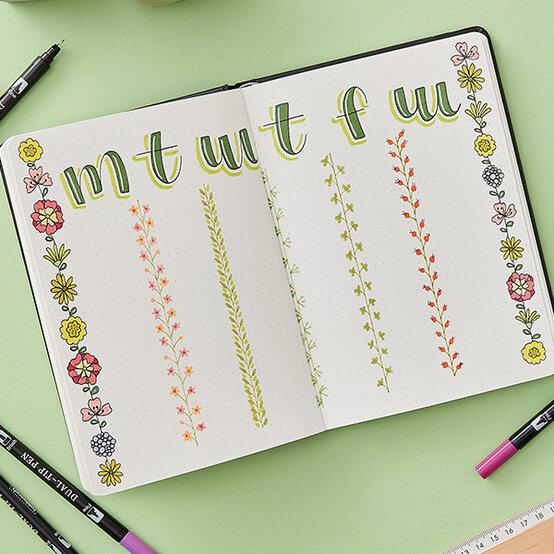 m t w t f w
DUAL-TIP PEN
13 14 15 16 17 18 19